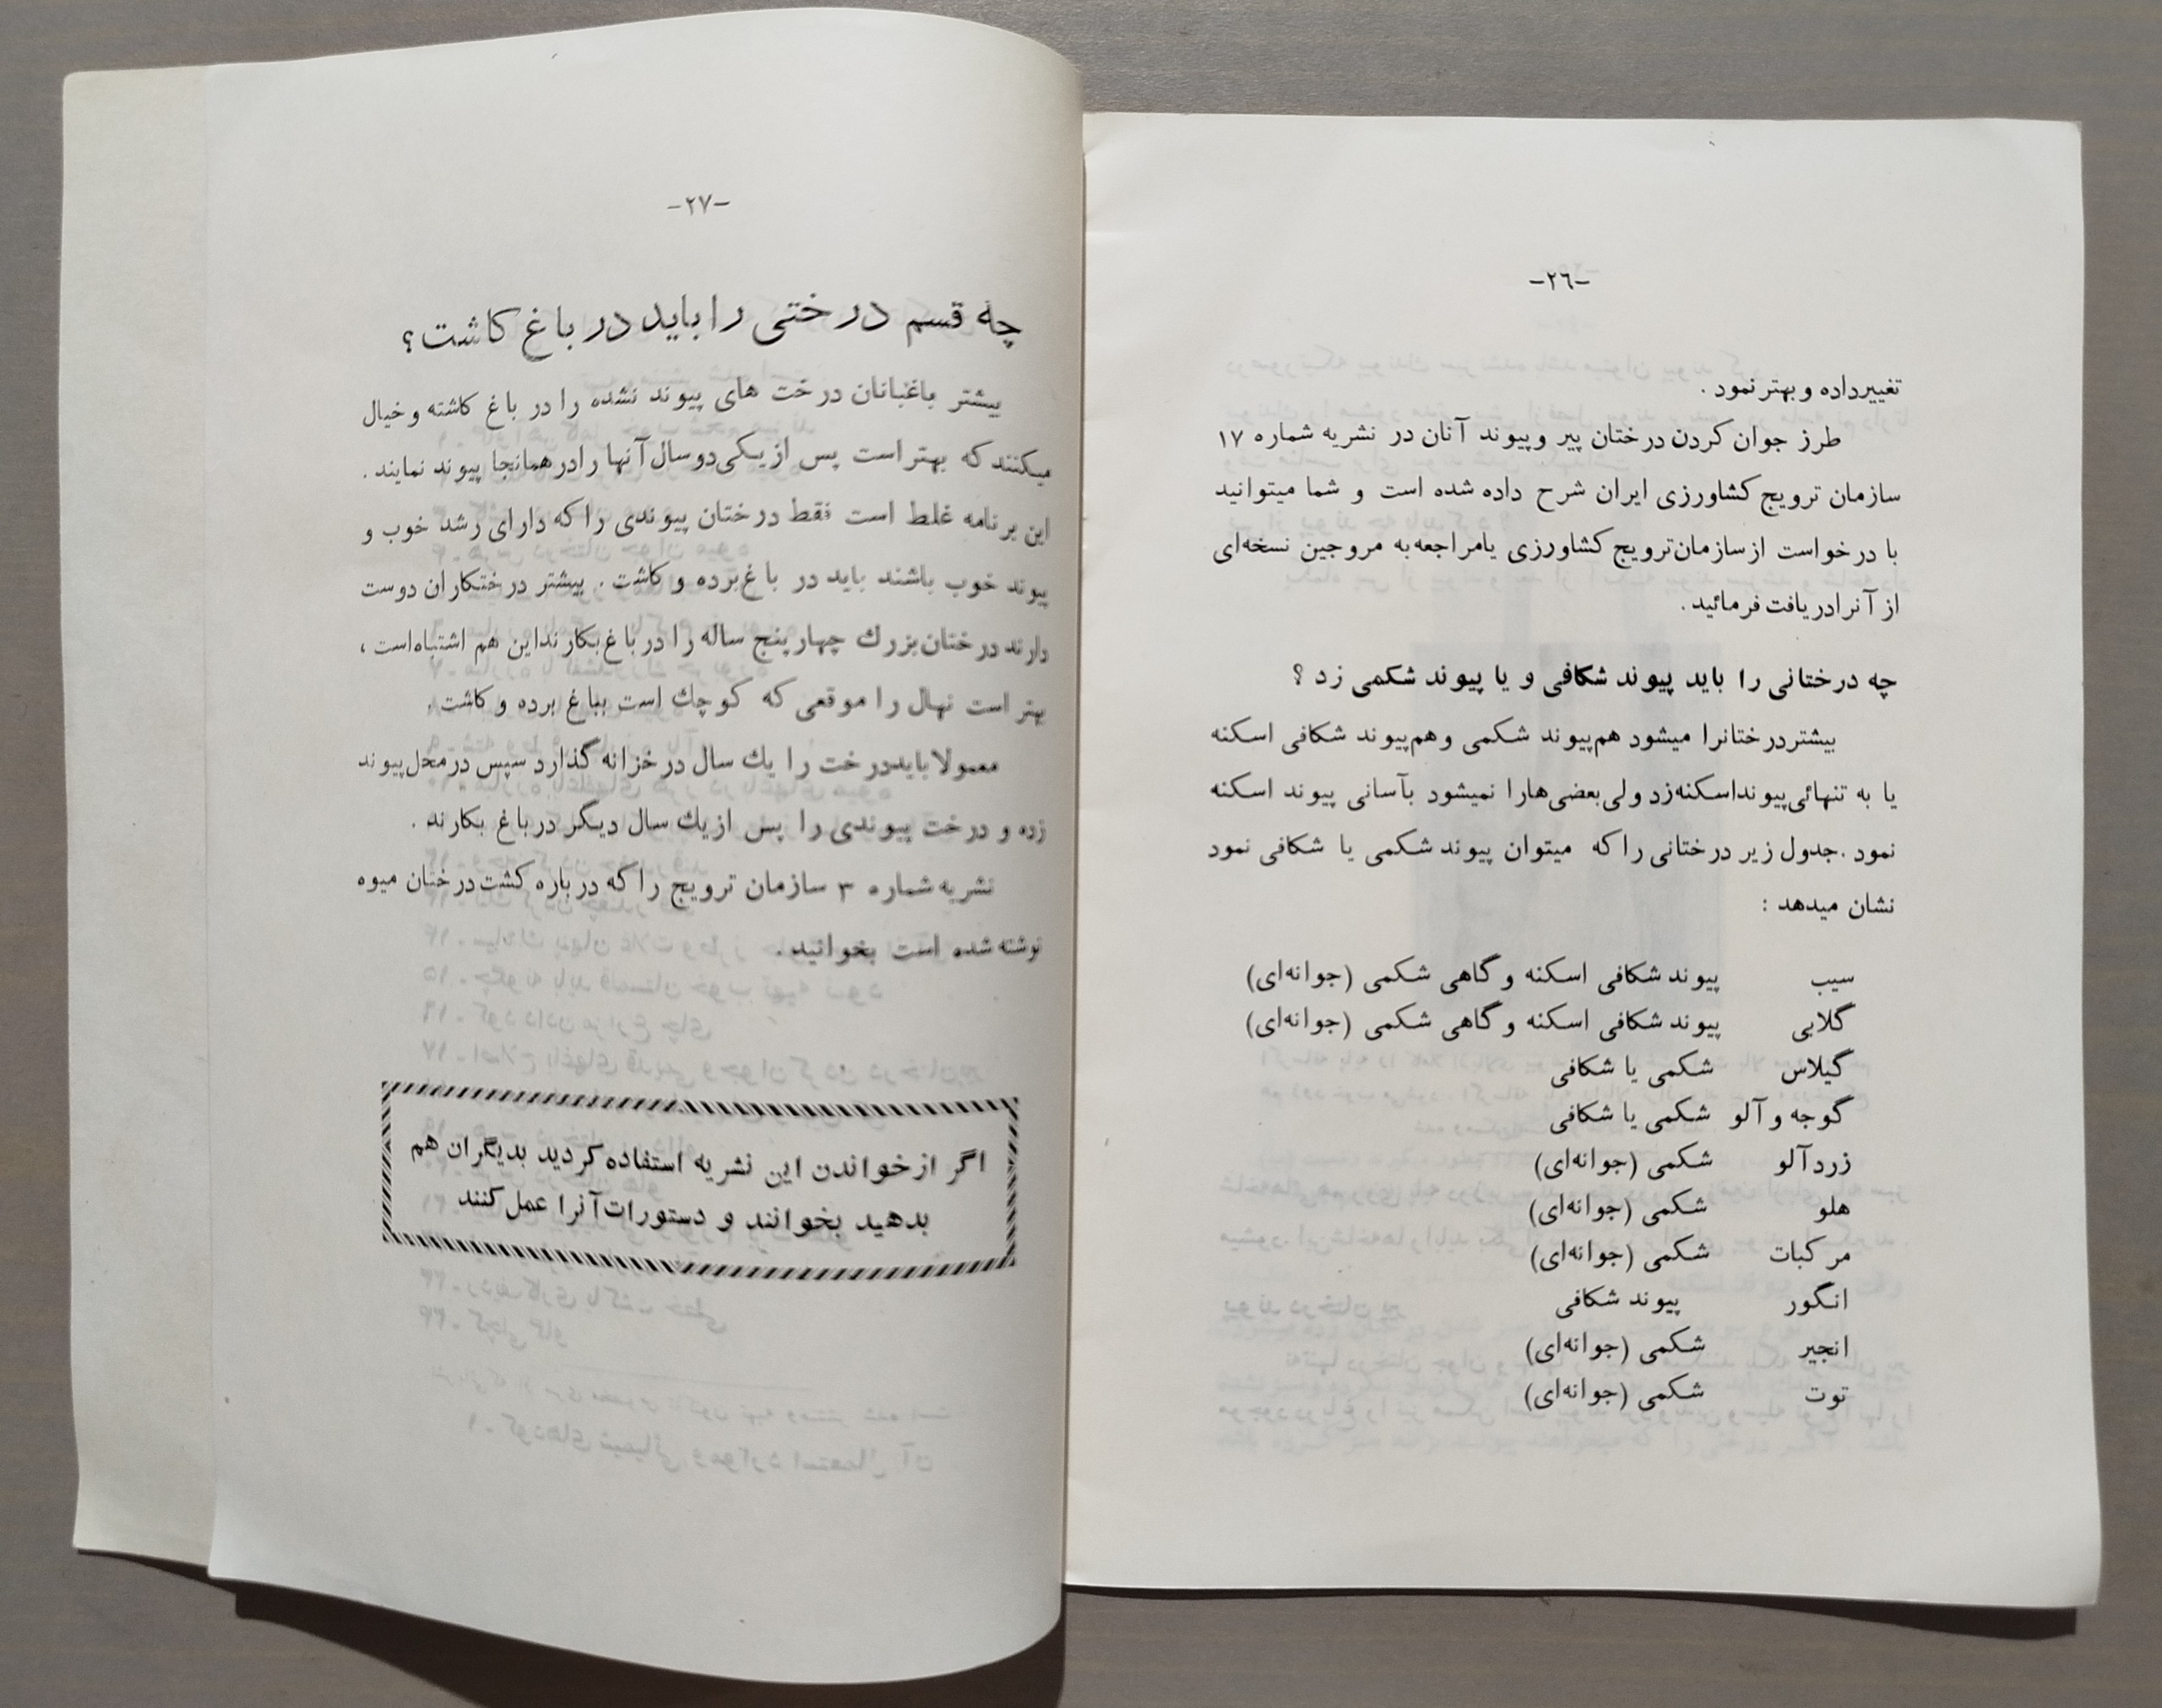 -۲۶-
تغییرداده و بهتر نمود .
طرز جوان کردن درختان پیر و پیوند آنان در نشریه شماره ۱۷
سازمان ترویج کشاورزی ایران شرح داده شده است و شما میتوانید
با درخواست از سازمان ترویج کشاورزی یا مراجعه به مروجین نسخه‌ای
از آنرا دریافت فرمائید.
چه درختانی را باید پیوند شکافی و یا پیوند شکمی زد ؟
بیشتر درختانرا میشود هم پیوند شکمی و هم پیوند شکافی اسکنه
یا به تنهائی پیوند اسکنه زد ولی بعضی‌ها را نمیشود بآسانی پیوند اسکنه
نمود . جدول زیر درختانی را که میتوان پیوند شکمی یا شکافی نمود
نشان میدهد :
سیب پیوند شکافی اسکنه و گاهی شکمی (جوانه‌ای)
گلابی پیوند شکافی اسکنه و گاهی شکمی (جوانه‌ای)
گیلاس شکمی یا شکافی
گوجه و آلو شکمی یا شکافی
زردآلو شکمی (جوانه‌ای)
هلو شکمی (جوانه‌ای)
مرکبات شکمی (جوانه‌ای)
انگور پیوند شکافی
انجیر شکمی (جوانه‌ای)
توت شکمی (جوانه‌ای)
-۲۷-
چه قسم درختی را باید در باغ کاشت؟
بیشتر باغبانان درخت های پیوند نشده را در باغ کاشته و خیال
میکنند که بهتر است پس از یکی دو سال آنها را در همانجا پیوند نمایند .
این برنامه غلط است فقط درختان پیوندی را که دارای رشد خوب و
پیوند خوب باشند باید در باغ برده و کاشت . بیشتر درختکاران دوست
دارند درختان بزرك چهار پنج ساله را در باغ بکارند این هم اشتباه است ،
بهتر است نهال را موقعی که کوچك است بباغ برده و کاشت .
معمولا باید درخت را یك سال در خزانه گذارد سپس در محل پیوند
زده و درخت پیوندی را پس از یك سال دیگر در باغ بکارند .
نشریه شماره ۳ سازمان ترویج را که درباره کشت درختان میوه
نوشته شده است بخوانید .
اگر از خواندن این نشریه استفاده کردید بدیگران هم
بدهید بخوانند و دستورات آنرا عمل کنند